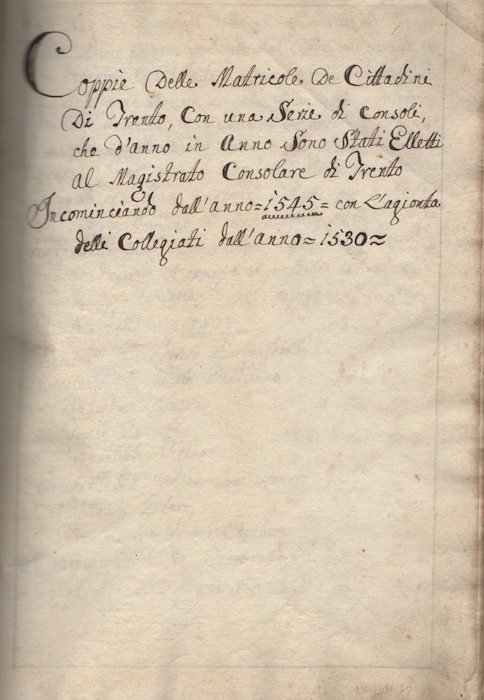 Coppie Delle Matricole De Cittadini
Di Trento, Con una Serie di Consoli,
che d'anno in Anno Sono Stati Elletti
al Magistrato Consolare di Trento
Incominciando dall'anno = 1545 = con L'agionta
delli Collegiati dall'anno = 1530 =